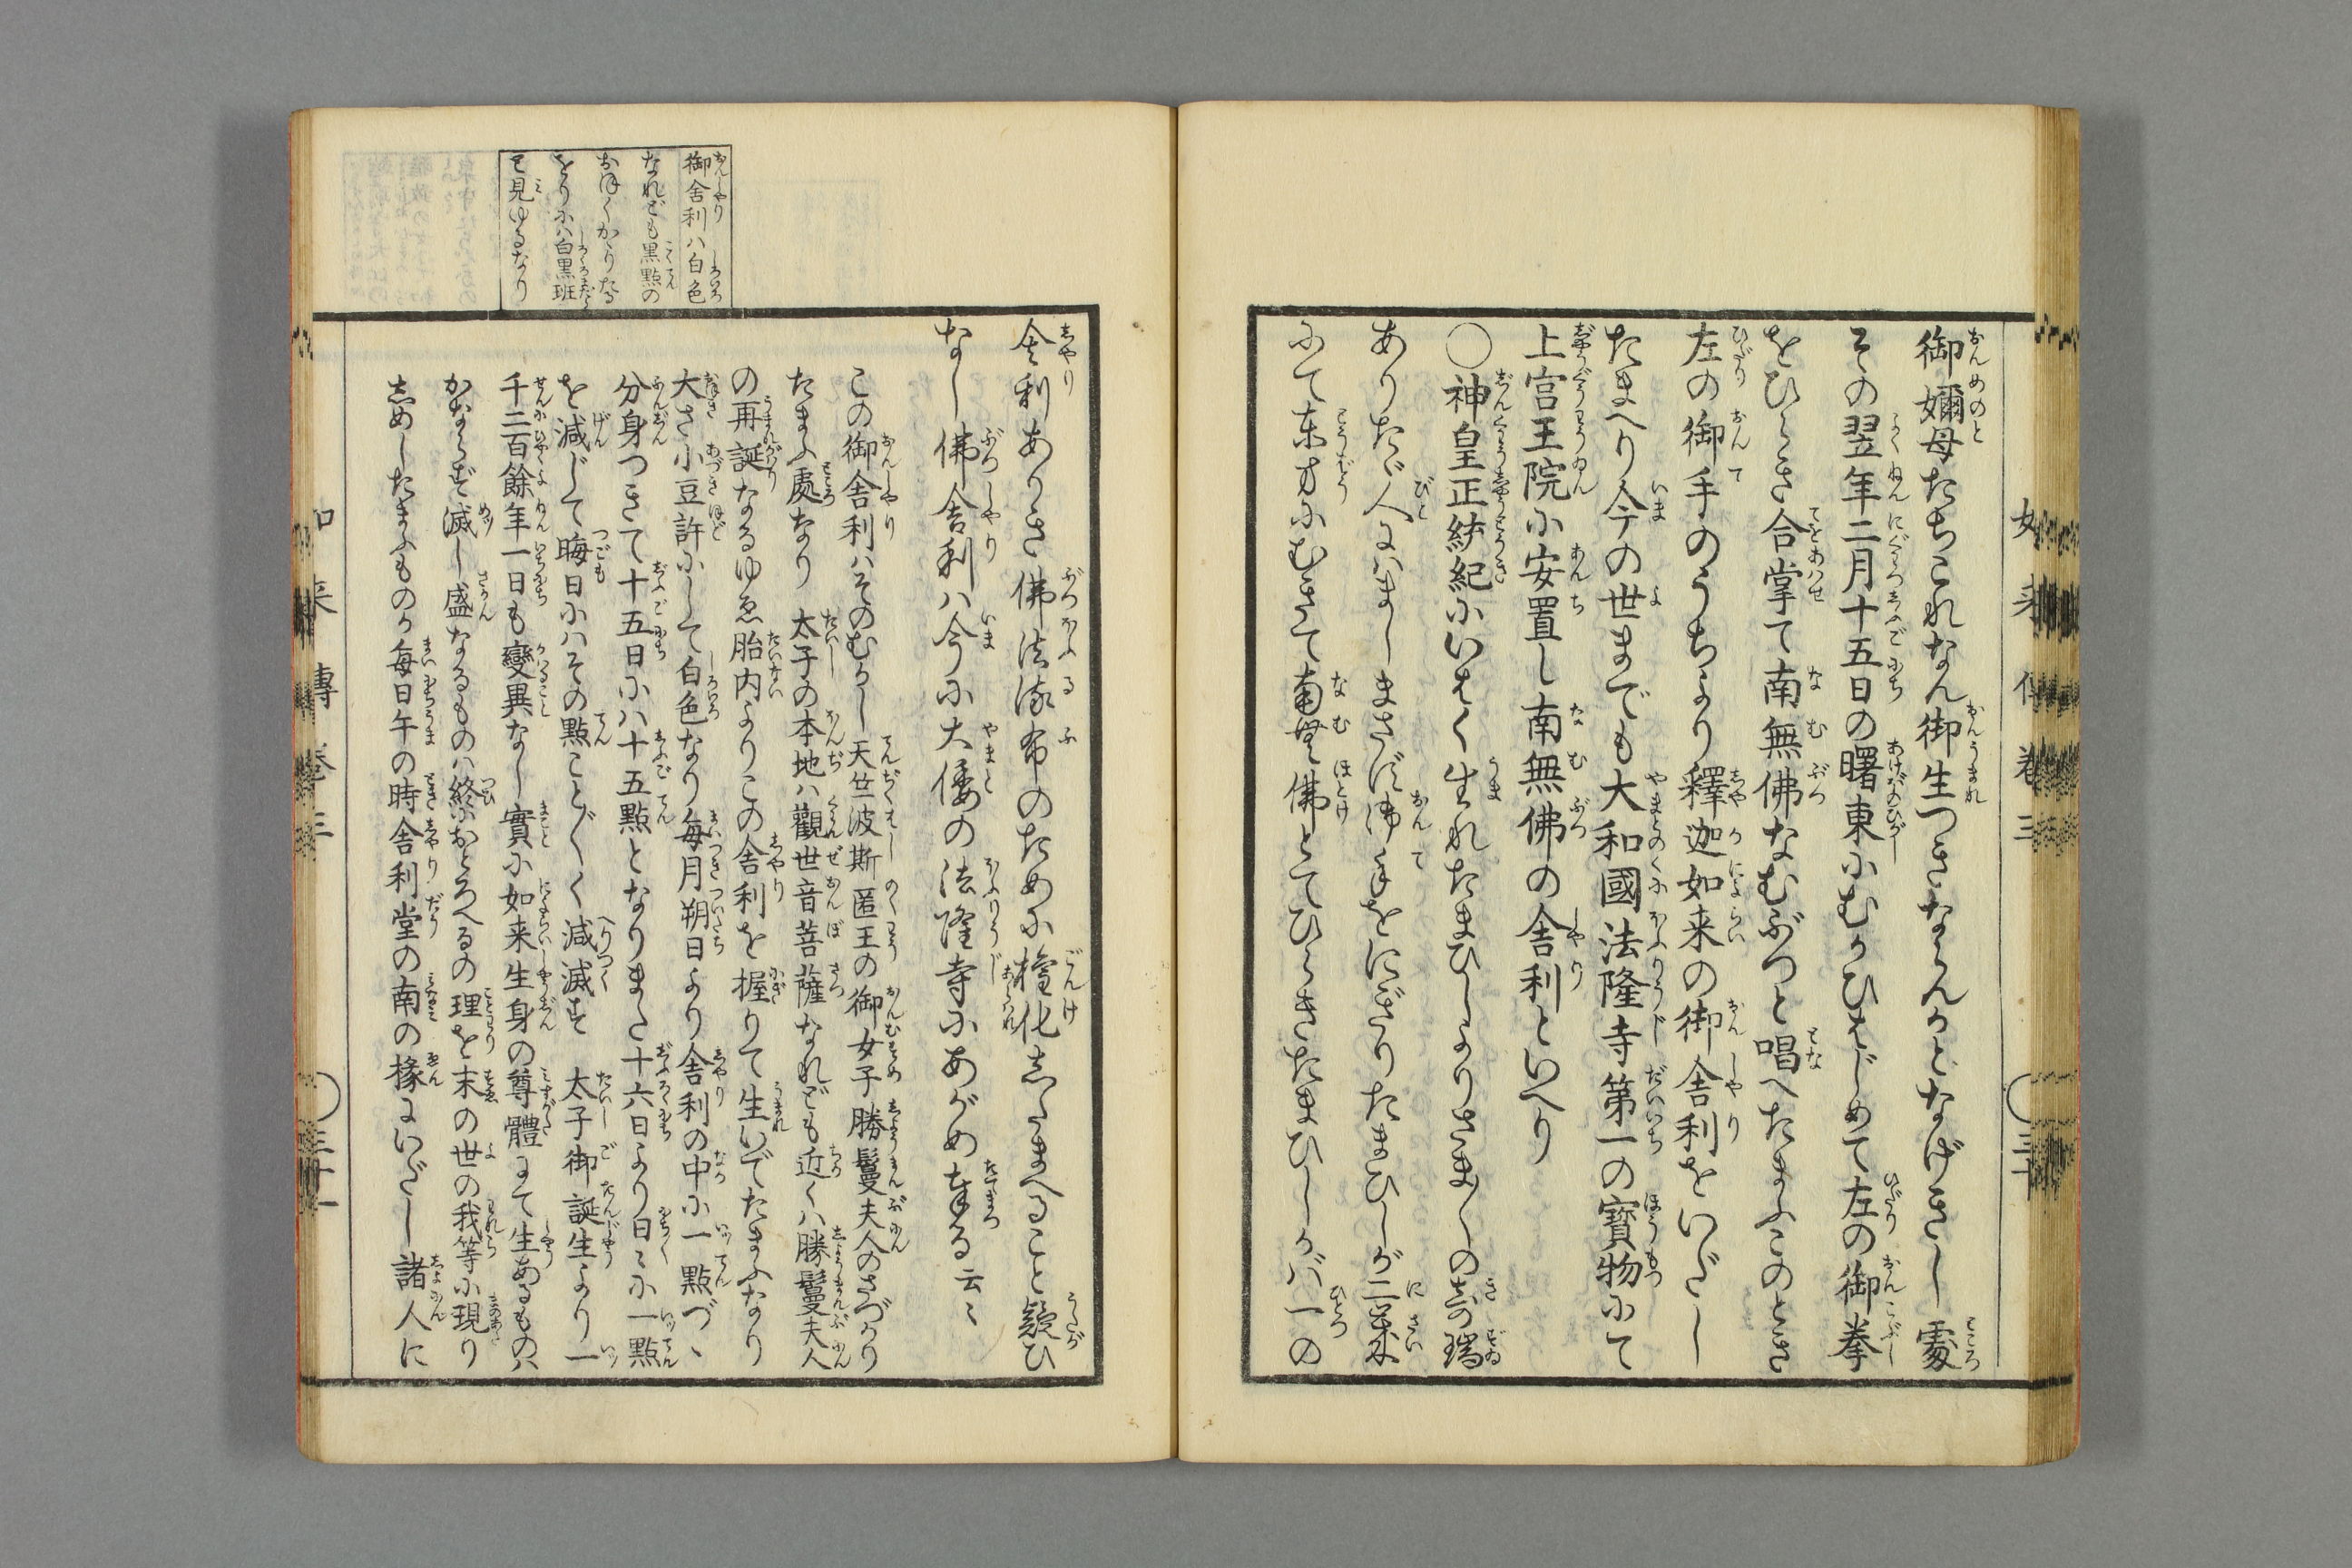 御嬭母たちこれなん御生つきならんかとなげきし處
その翌年二月十五日の曙東にむかひはじめて左の御拳
をひらき合掌て南無佛なむぶつと唱へたまふこのとき
左の御手のうちより釋迦如来の御舎利をいだし
たまへり今の世までも大和國法隆寺第一の寳物にて
上宮王院に安置し南無佛の舎利といへり
○神皇正統紀にいはく生れたまひしよりさま〴〵の竒瑞
ありたゞ人にハましまさず御手をにぎりたまひしが二歳
にて東方にむきて南無佛とてひらきたまひしかバ一の
如来傳巻三
○三十
舎利ありき佛法流布のために權化したまへること疑ひ
なし佛舎利ハ今に大倭の法隆寺にあがめ奉る云〻
この御舎利ハそのむかし天竺波斯匿王の御女子勝鬘夫人のさづかり
たまふ處なり 太子の本地ハ觀世音菩薩なれども近くハ勝鬘夫人
の再誕なるゆゑ胎内よりこの舎利を握りて生いでたまふなり
大さ小豆許にして白色なり毎月朔日より舎利の中に一點づゝ
分身つきて十五日にハ十五點となりまた十六日より日〻に一點
を減じて晦日にハその點こと〴〵く減滅す 太子御誕生より一
千二百餘年一日も變異なし實に如来生身の尊體にて生あるものハ
かならず滅し盛なるものハ終におとろへるの理を末の世の我等に現り
しめしたまふものか毎日午の時舎利堂の南の椽にいだし諸人に
御舎利ハ白色
なれども黒點の
おほくかゝりたる
をりにハ白黒班
に見ゆるなり
如来傳巻三
○三十一